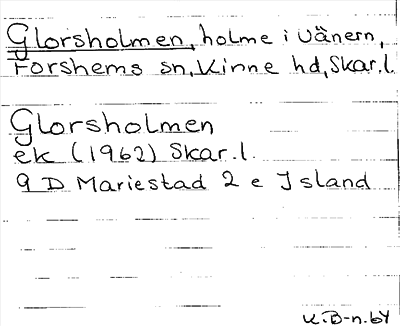 Glorsholmen, holme i Vänern,
Forshems sn, Kinne hd, Skar.l.
Glorsholmen
ek (1962) Skar.l.
9 D Mariestad 2 e Island
K.D-n.64